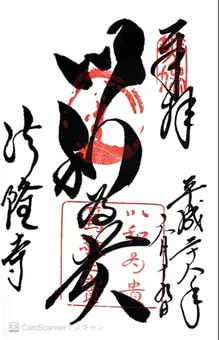 奉拝
平成二八年
以和為貴
以和為貴
法隆寺
CS CamScannerでスキャン